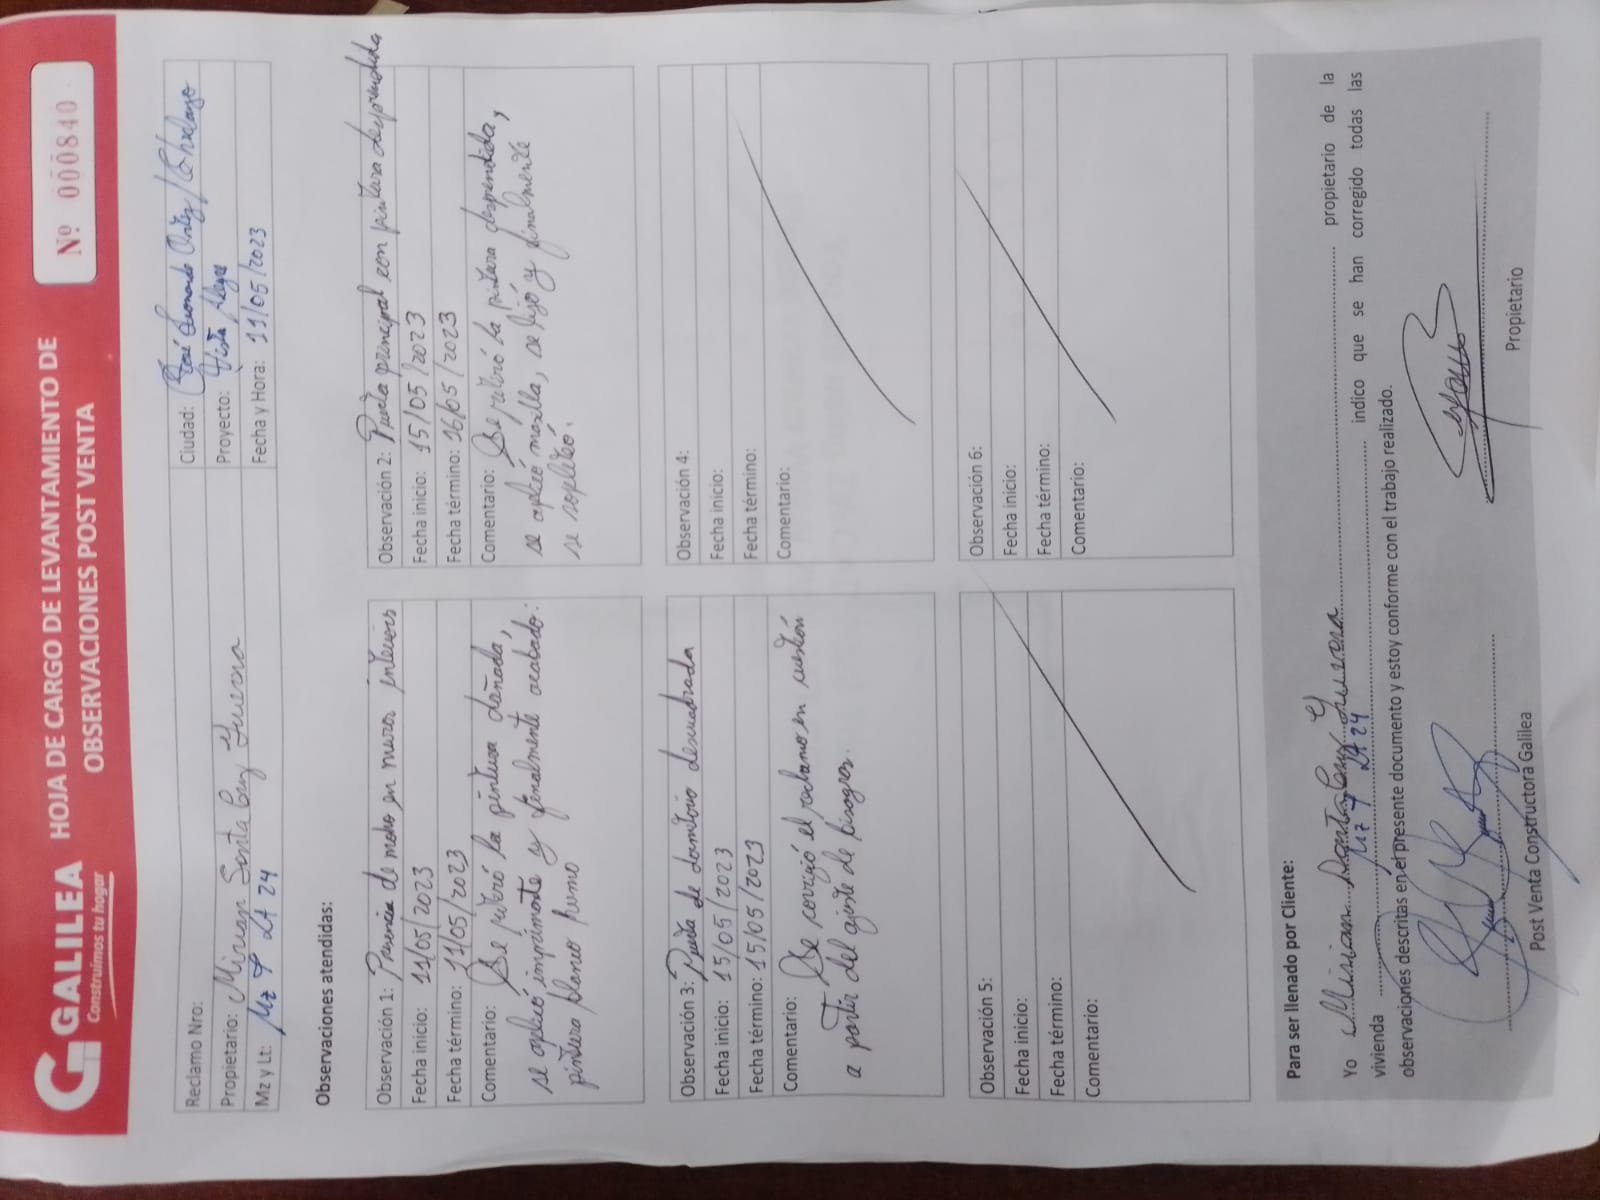 GALILEA
Construimos tu hogar
HOJA DE CARGO DE LEVANTAMIENTO DE
OBSERVACIONES POST VENTA
Nº 000840
Reclamo Nro:
Ciudad: José Leonardo Ortiz / Chiclayo
Propietario: Mirian Santa Cruz Guerra
Proyecto: Vista Alegre
Mz y Lt: Mz Lt 24
Fecha y Hora: 11/05/2023
Observaciones atendidas:
Observación 1: Presencia de moho en muros interiores
Fecha inicio: 11/05/2023
Fecha término: 11/05/2023
Comentario: Se retiró la pintura dañada,
se aplicó imprimante y finalmente acabado:
pintura blanco humo
Observación 2: Puerta principal con pintura desprendida
Fecha inicio: 15/05/2023
Fecha término: 16/05/2023
Comentario: Se retiró la pintura desprendida,
se aplicó masilla, se lijó y finalmente
se sopleteó.
Observación 3: Puerta de dormitorio descuadrada
Fecha inicio: 15/05/2023
Fecha término: 15/05/2023
Comentario: Se corrigió el reclamo en cuestión
a partir del ajuste de bisagras.
Observación 4:
Fecha inicio:
Fecha término:
Comentario:
Observación 5:
Fecha inicio:
Fecha término:
Comentario:
Observación 6:
Fecha inicio:
Fecha término:
Comentario:
Para ser llenado por Cliente:
Yo Mirian Santa Cruz Guerra propietario de la
vivienda Mz Lt 24 indico que se han corregido todas las
observaciones descritas en el presente documento y estoy conforme con el trabajo realizado.
Post Venta Constructora Galilea
Propietario